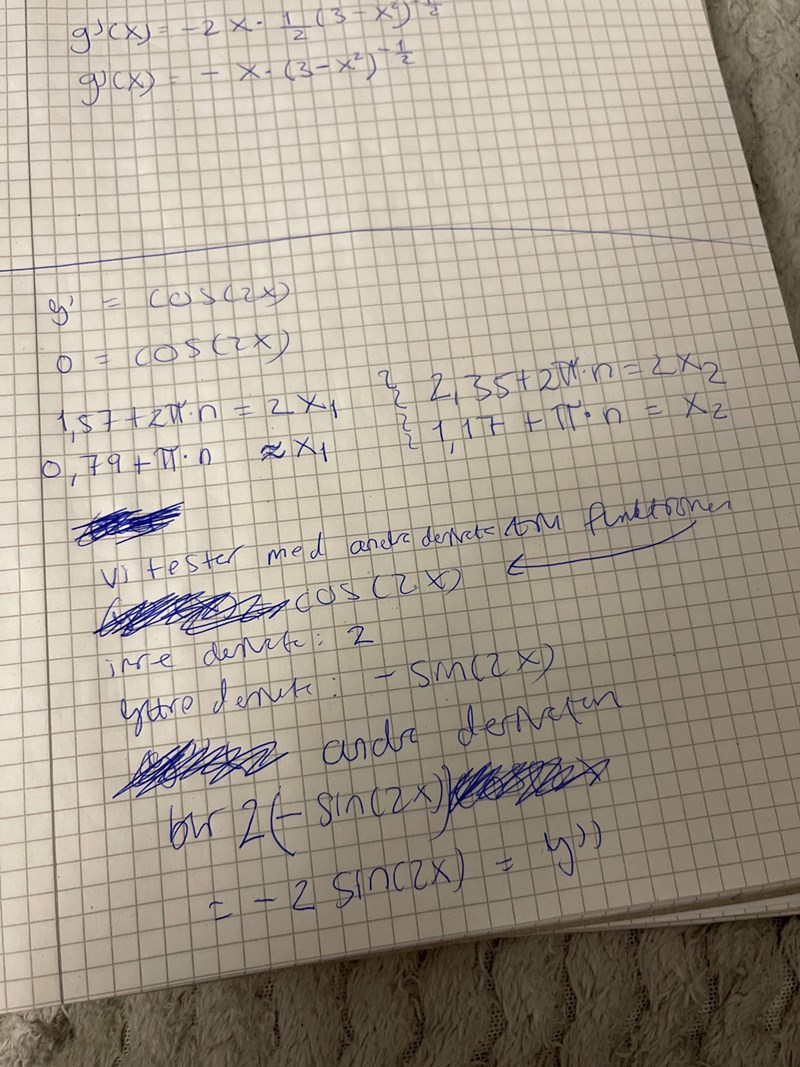 g'(x) = -2x · 1/2 (3-x²)^-1/2
g'(x) = - x · (3-x²)^-1/2
y' = cos(2x)
0 = cos(2x)
1,57+2π·n = 2x₁ } 2,35+2π·n = 2x₂
0,79+π·n ≈ x₁ } 1,17 + π·n = x₂
vi tester med andra derivata funktionen
cos(2x)
inre derivata: 2
yttre derivata: - sin(2x)
andra derivatan
blir 2(- sin(2x))
= - 2 sin(2x) = y''